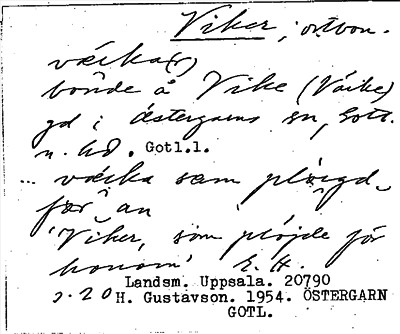 Viker, ortbon.
väika(r)
bonde å Vike (Väike)
gd i Östergarns sn, Gotl.
n. hd. Gotl.l.
... väika sam plöigd
før an
'Viker, som plöjde för
honom' E. H.
Landsm. Uppsala. 20790
s. 20 H. Gustavson. 1954. ÖSTERGARN
GOTL.